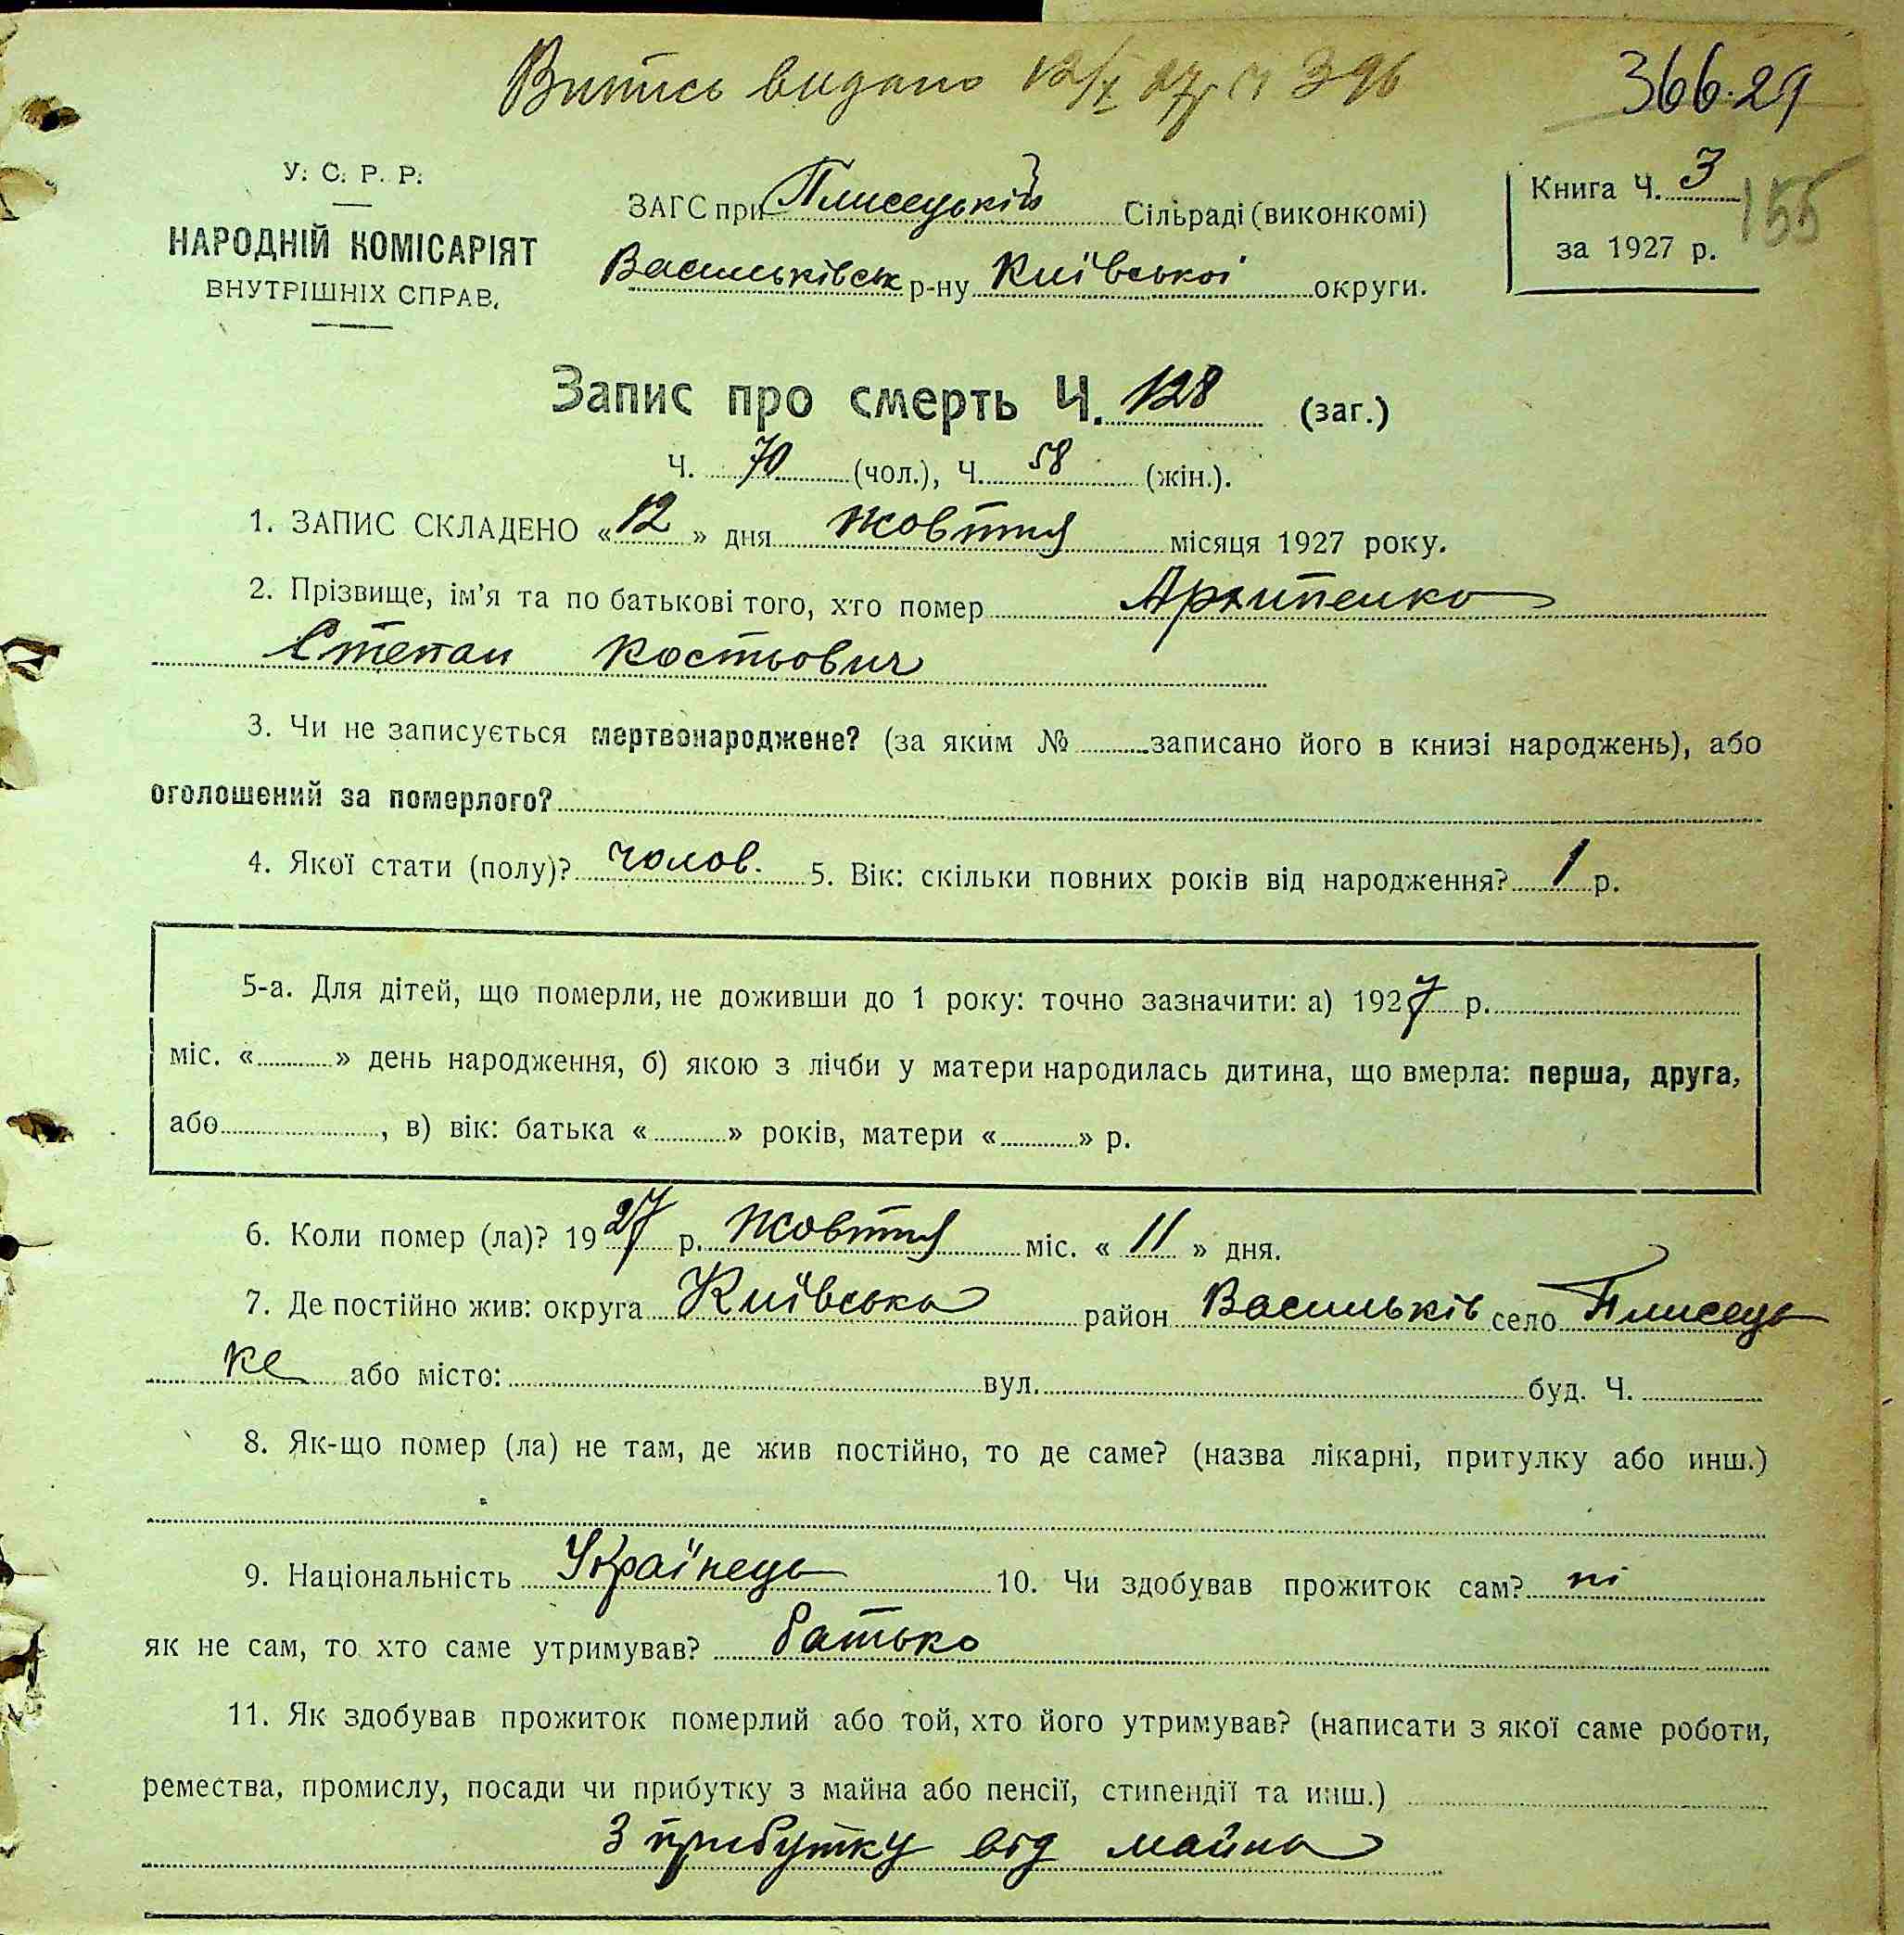 Випись видано 12/X 27 р Ч 396
366.29
У. С. Р. Р.
НАРОДНІЙ КОМІСАРІЯТ
ВНУТРІШНІХ СПРАВ.
ЗАГС при Плисецькій Сільраді (виконкомі)
Васильківськ р-ну Київської округи.
Книга Ч. 3
155
за 1927 р.
Запис про смерть Ч. 128 (заг.)
Ч. 70 (чол.), Ч. 58 (жін.).
1. ЗАПИС СКЛАДЕНО «12» дня жовтня місяця 1927 року.
2. Прізвище, ім'я та по батькові того, хто помер Архипенко
Степан Костьович
3. Чи не записується мертвонароджене? (за яким № записано його в книзі народжень), або
оголошений за померлого?
4. Якої стати (полу)? чолов. 5. Вік: скільки повних років від народження? 1 р.
5-а. Для дітей, що померли, не доживши до 1 року: точно зазначити: а) 1927 р.
міс. « » день народження, б) якою з лічби у матери народилась дитина, що вмерла: перша, друга,
або , в) вік: батька « » років, матери « » р.
6. Коли помер (ла)? 1927 р. жовтня міс. «11» дня.
7. Де постійно жив: округа Київська район Васильків село Плисець
ке або місто: вул. буд. Ч.
8. Як-що помер (ла) не там, де жив постійно, то де саме? (назва лікарні, притулку або инш.)
9. Національність Українець 10. Чи здобував прожиток сам? ні
як не сам, то хто саме утримував? батько
11. Як здобував прожиток померлий або той, хто його утримував? (написати з якої саме роботи,
ремества, промислу, посади чи прибутку з майна або пенсії, стипендії та инш.)
З прибутку від майна